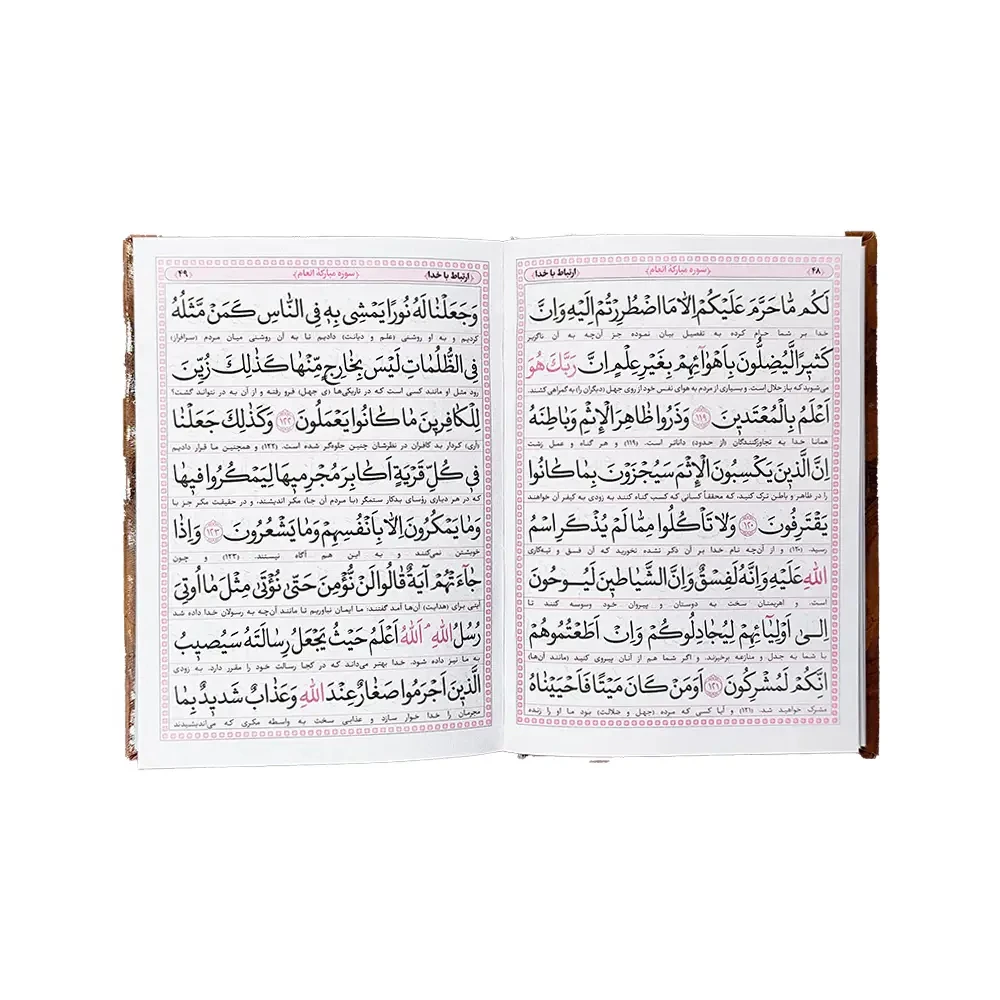 ﴿۴۸﴾ ﴿سوره مبارکهٔ انعام﴾ ﴿ارتباط با خدا﴾
لَكُم مَّا حَرَّمَ عَلَيْكُمْ اِلّا مَا اضْطُرِرْتُمْ اِلَيْهِ وَاِنَّ
خدا بر شما حرام کرده به تفصیل بیان نموده جز آن‌چه به آن ناگزیر
كَثيرًا لَيُضِلُّونَ بِاَهْوآئِهِمْ بِغَيْرِ عِلْمٍ اِنَّ رَبَّكَ هُوَ
می‌شوید که باز حلال است. و بسیاری از مردم به هوای نفس خود از روی جهل (دیگران را) به گمراهی کشند.
اَعْلَمُ بِالْمُعْتَدينَ ﴿۱۱۹﴾ وَذَرُوا ظاهِرَ الْاِثْمِ وَباطِنَهُ
همانا خدا به تجاوزکنندگان (از حدود) داناتر است. (۱۱۹) و هر گناه و عمل زشت
اِنَّ الَّذينَ يَكْسِبُونَ الْاِثْمَ سَيُجْزَوْنَ بِما كانُوا
را در ظاهر و باطن ترک کنید، که محققاً کسانی که کسب گناه کنند به زودی به کیفر آن خواهند
يَقْتَرِفُونَ ﴿۱۲۰﴾ وَلا تَاْكُلُوا مِمّا لَمْ يُذْكَرِ اسْمُ
رسید. (۱۲۰) و از آن‌چه نام خدا بر آن ذکر نشده نخورید که آن فسق و تبه‌کاری
اللهِ عَلَيْهِ وَاِنَّهُ لَفِسْقٌ وَاِنَّ الشَّياطينَ لَيُوحُونَ
است. و اهریمنان سخت به دوستان و پیروان خود وسوسه کنند تا
اِلىٰ اَوْلِيآئِهِمْ لِيُجادِلُوكُمْ وَاِنْ اَطَعْتُمُوهُمْ
با شما به جدل و منازعه برخیزند. و اگر شما هم از آنان پیروی کنید (مانند آن‌ها)
اِنَّكُمْ لَمُشْرِكُونَ ﴿۱۲۱﴾ اَوَمَنْ كانَ مَيْتًا فَاَحْيَيْناهُ
مشرک خواهید شد. (۱۲۱) و آیا کسی که مرده (جهل و ضلالت) بود ما او را زنده
﴿ارتباط با خدا﴾ ﴿سوره مبارکهٔ انعام﴾ ﴿۴۹﴾
وَجَعَلْنا لَهُ نُورًا يَمْشي بِهِ فِي النّاسِ كَمَنْ مَّثَلُهُ
کردیم و به او روشنی (علم و دیانت) دادیم تا به آن روشنی میان مردم (سرافراز)
فِي الظُّلُماتِ لَيْسَ بِخارِجٍ مِّنْها كَذٰلِكَ زُيِّنَ
رود مثل او مانند کسی است که در تاریکی‌ها (ی جهل) فرو رفته و از آن به در نتواند گشت؟
لِلْكافِرينَ ما كانُوا يَعْمَلُونَ ﴿۱۲۲﴾ وَكَذٰلِكَ جَعَلْنا
(آری) کردار بد کافران در نظرشان چنین جلوه‌گر شده است. (۱۲۲) و همچنین ما قرار دادیم
في كُلِّ قَرْيَةٍ اَكابِرَ مُجْرِميها لِيَمْكُرُوا فيها
که در هر دیاری رؤسای بدکار ستمگر (با مردم آن جا) مکر اندیشند، و در حقیقت مکر جز با
وَما يَمْكُرُونَ اِلّا بِاَنْفُسِهِمْ وَما يَشْعُرُونَ ﴿۱۲۳﴾ وَاِذا
خویشتن نمی‌کنند و به این هم آگاه نیستند. (۱۲۳) و چون
جآءَتْهُمْ آيَةٌ قالُوا لَنْ نُّؤْمِنَ حَتّىٰ نُؤْتىٰ مِثْلَ ما اُوتِيَ
آیتی برای (هدایت) آن‌ها آمد گفتند: ما ایمان نیاوریم تا مانند آن‌چه به رسولان خدا داده شد
رُسُلُ اللهِ ۘ اَللهُ اَعْلَمُ حَيْثُ يَجْعَلُ رِسالَتَهُ سَيُصيبُ
به ما نیز داده شود. خدا بهتر می‌داند که در کجا رسالت خود را مقرر دارد. به زودی
الَّذينَ اَجْرَمُوا صَغارٌ عِنْدَ اللهِ وَعَذابٌ شَديدٌ بِما
مجرمان را خدا خوار سازد و عذابی سخت به واسطه مکری که می‌اندیشیدند